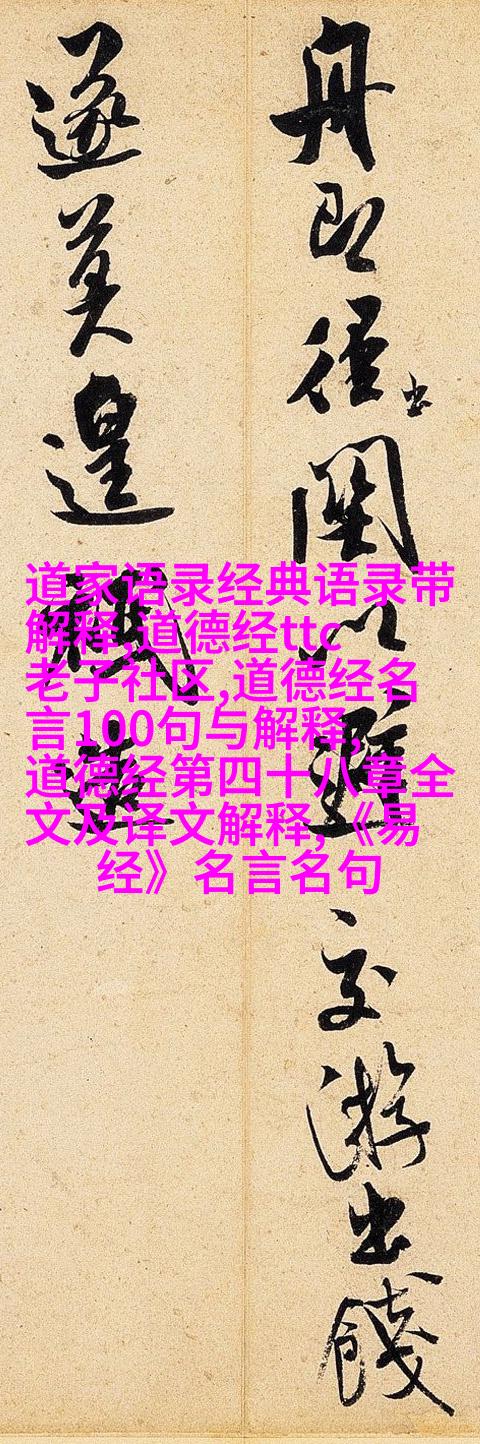 舟即徑出以避交游出餞
遂莫遑
道家语录经典语录带
解释,道德经ttc
老子社区,道德经名
言100句与解释,
道德经第四十八章全
文及译文解释,《易
经》名言名句